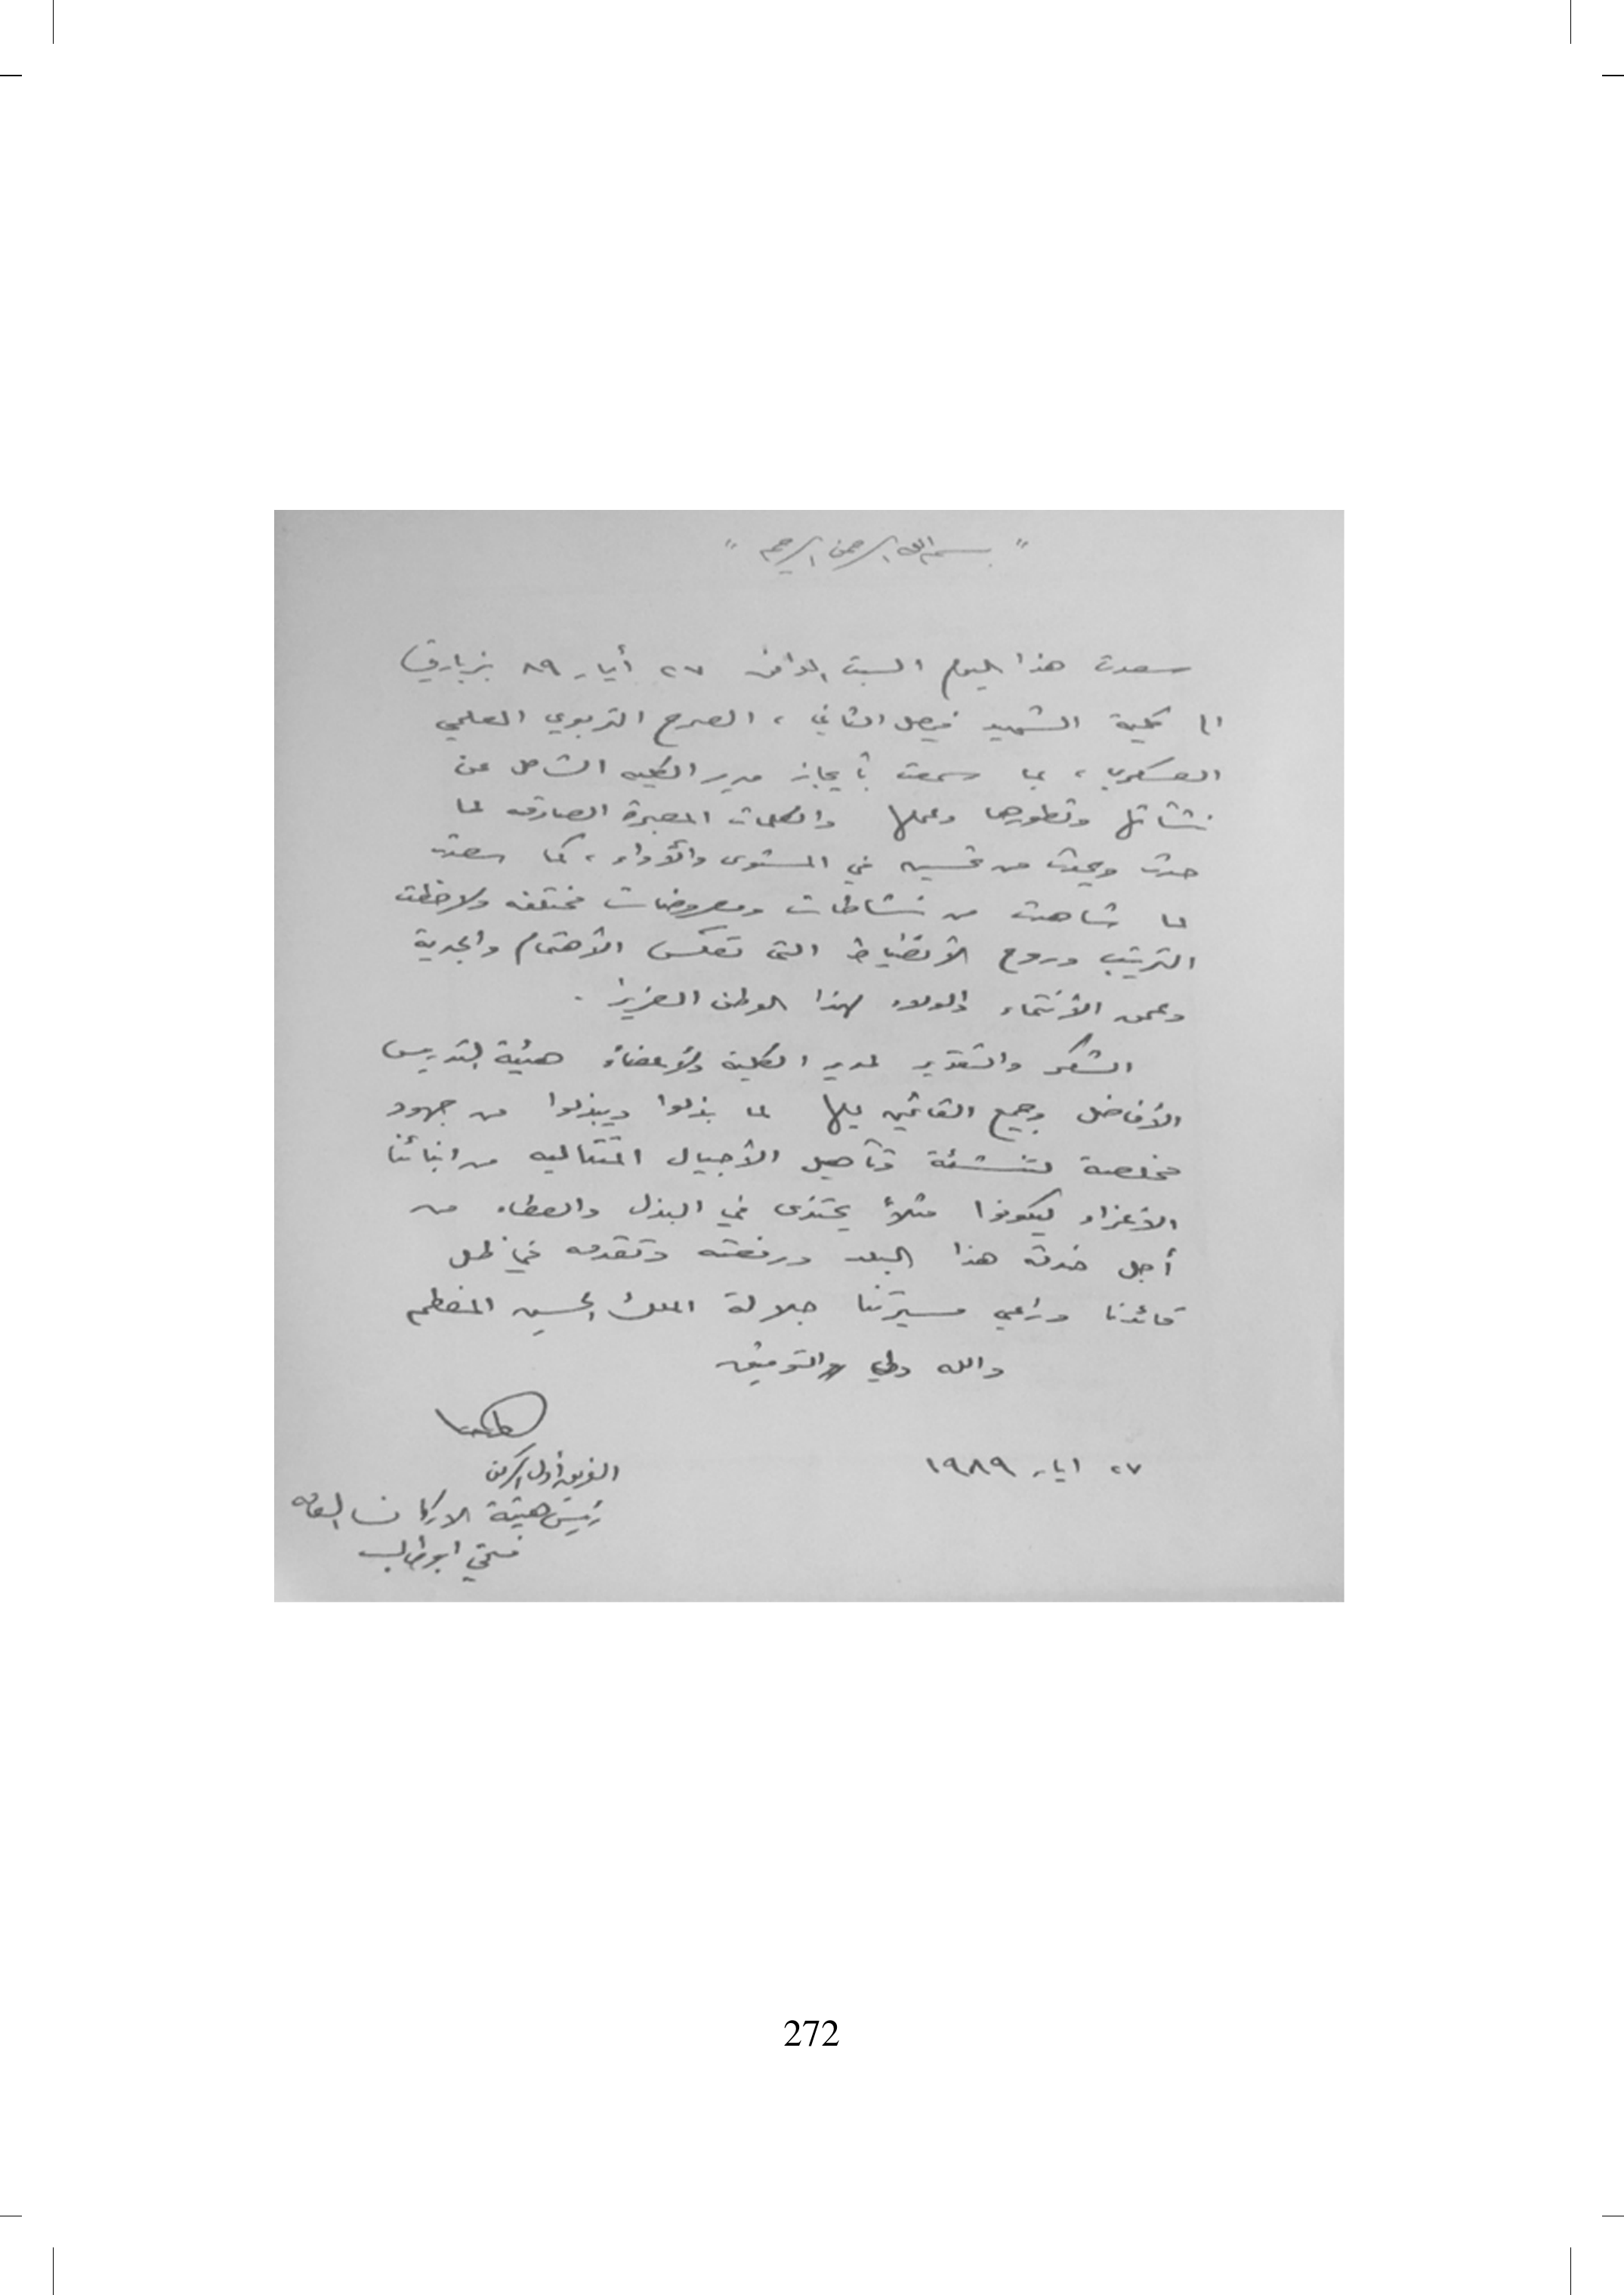 " بسم الله الرحمن الرحيم "
سعدت هذا اليوم السبت الموافق ٢٧ أيار ٨٩ بزيارتي
الى كلية الشهيد فيصل الثاني ، الصرح التربوي العلمي
العسكري ، بما سمعت بأيجاز مدير الكليه الشامل عن
نشأتها وتطورها وعملها والكلمات المعبرة الصادقه لما
حدث ويحدث من تحسين في المستوى والأداء ، كما سعدت
لما شاهدت من نشاطات ومعروضات مختلفه ولاحظت
الترتيب وروح الأنضباط التي تعكس الأهتمام والجدية
وعمق الأنتماء والولاء لهذا الوطن العزيز .
الشكر والتقدير لمدير الكلية ولأعضاء هيئة التدريس
الأفاضل وجميع القائمين عليها لما بذلوا ويبذلوا من جهود
مخلصة لتنشئة وتأهيل الأجيال المتتاليه من ابنائنا
الأعزاء ليكونوا مثلاً يحتذى في البذل والعطاء من
أجل خدمة هذا البلد ورفعته وتقدمه في ظل
قائدنا وراعي مسيرتنا جلالة الملك الحسين المعظم
والله ولي التوفيق
٢٧ ايار ١٩٨٩
الفريق أول الركن
رئيس هيئة الاركان العامه
فتحي ابو طالب
272